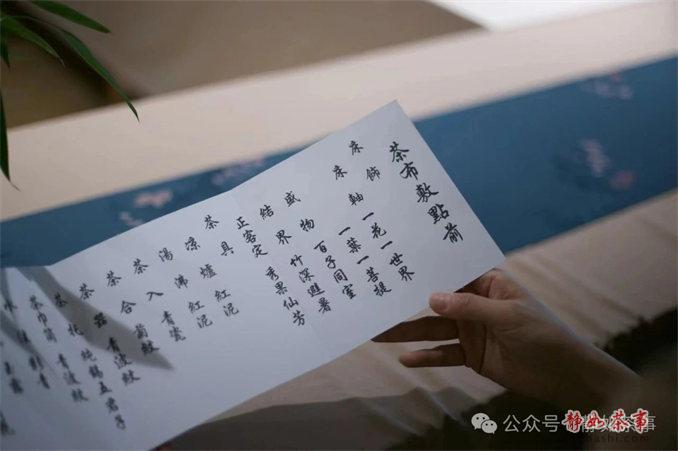 茶布敷點前
床飾 一花一世界
床軸 一葉一菩提
盛物 百子同室
結界 竹深避暑
正客定 秀果仙芳
茶具
涼爐 紅泥
湯沸 紅泥
茶入 青瓷
茶合 菊紋
茶器 青波紋
茶托 純錫五君子
茶巾筒 青波紋
公众号
静如茶事